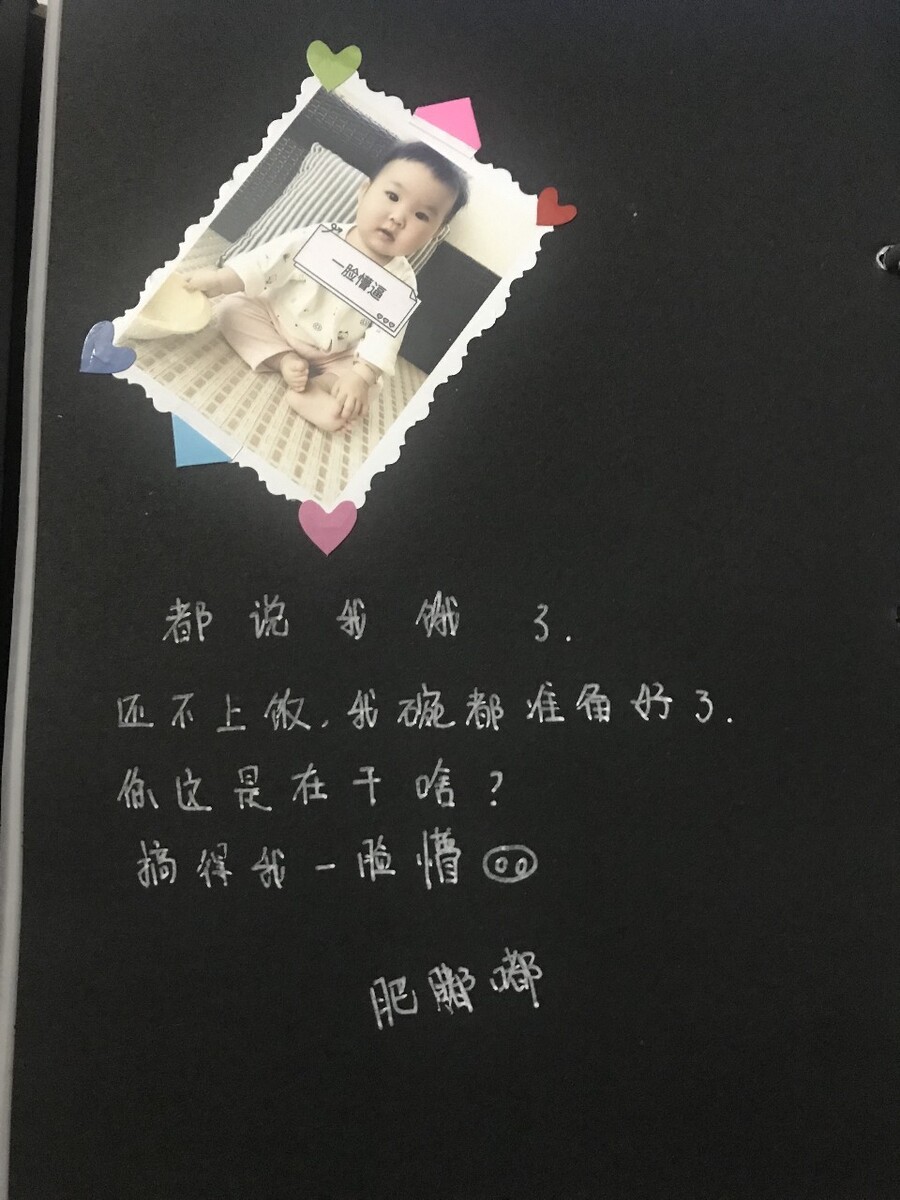 一脸懵逼
都说我饿了.
还不上饭,我碗都准备好了.
你这是在干啥?
搞得我一脸懵
肥嘟嘟